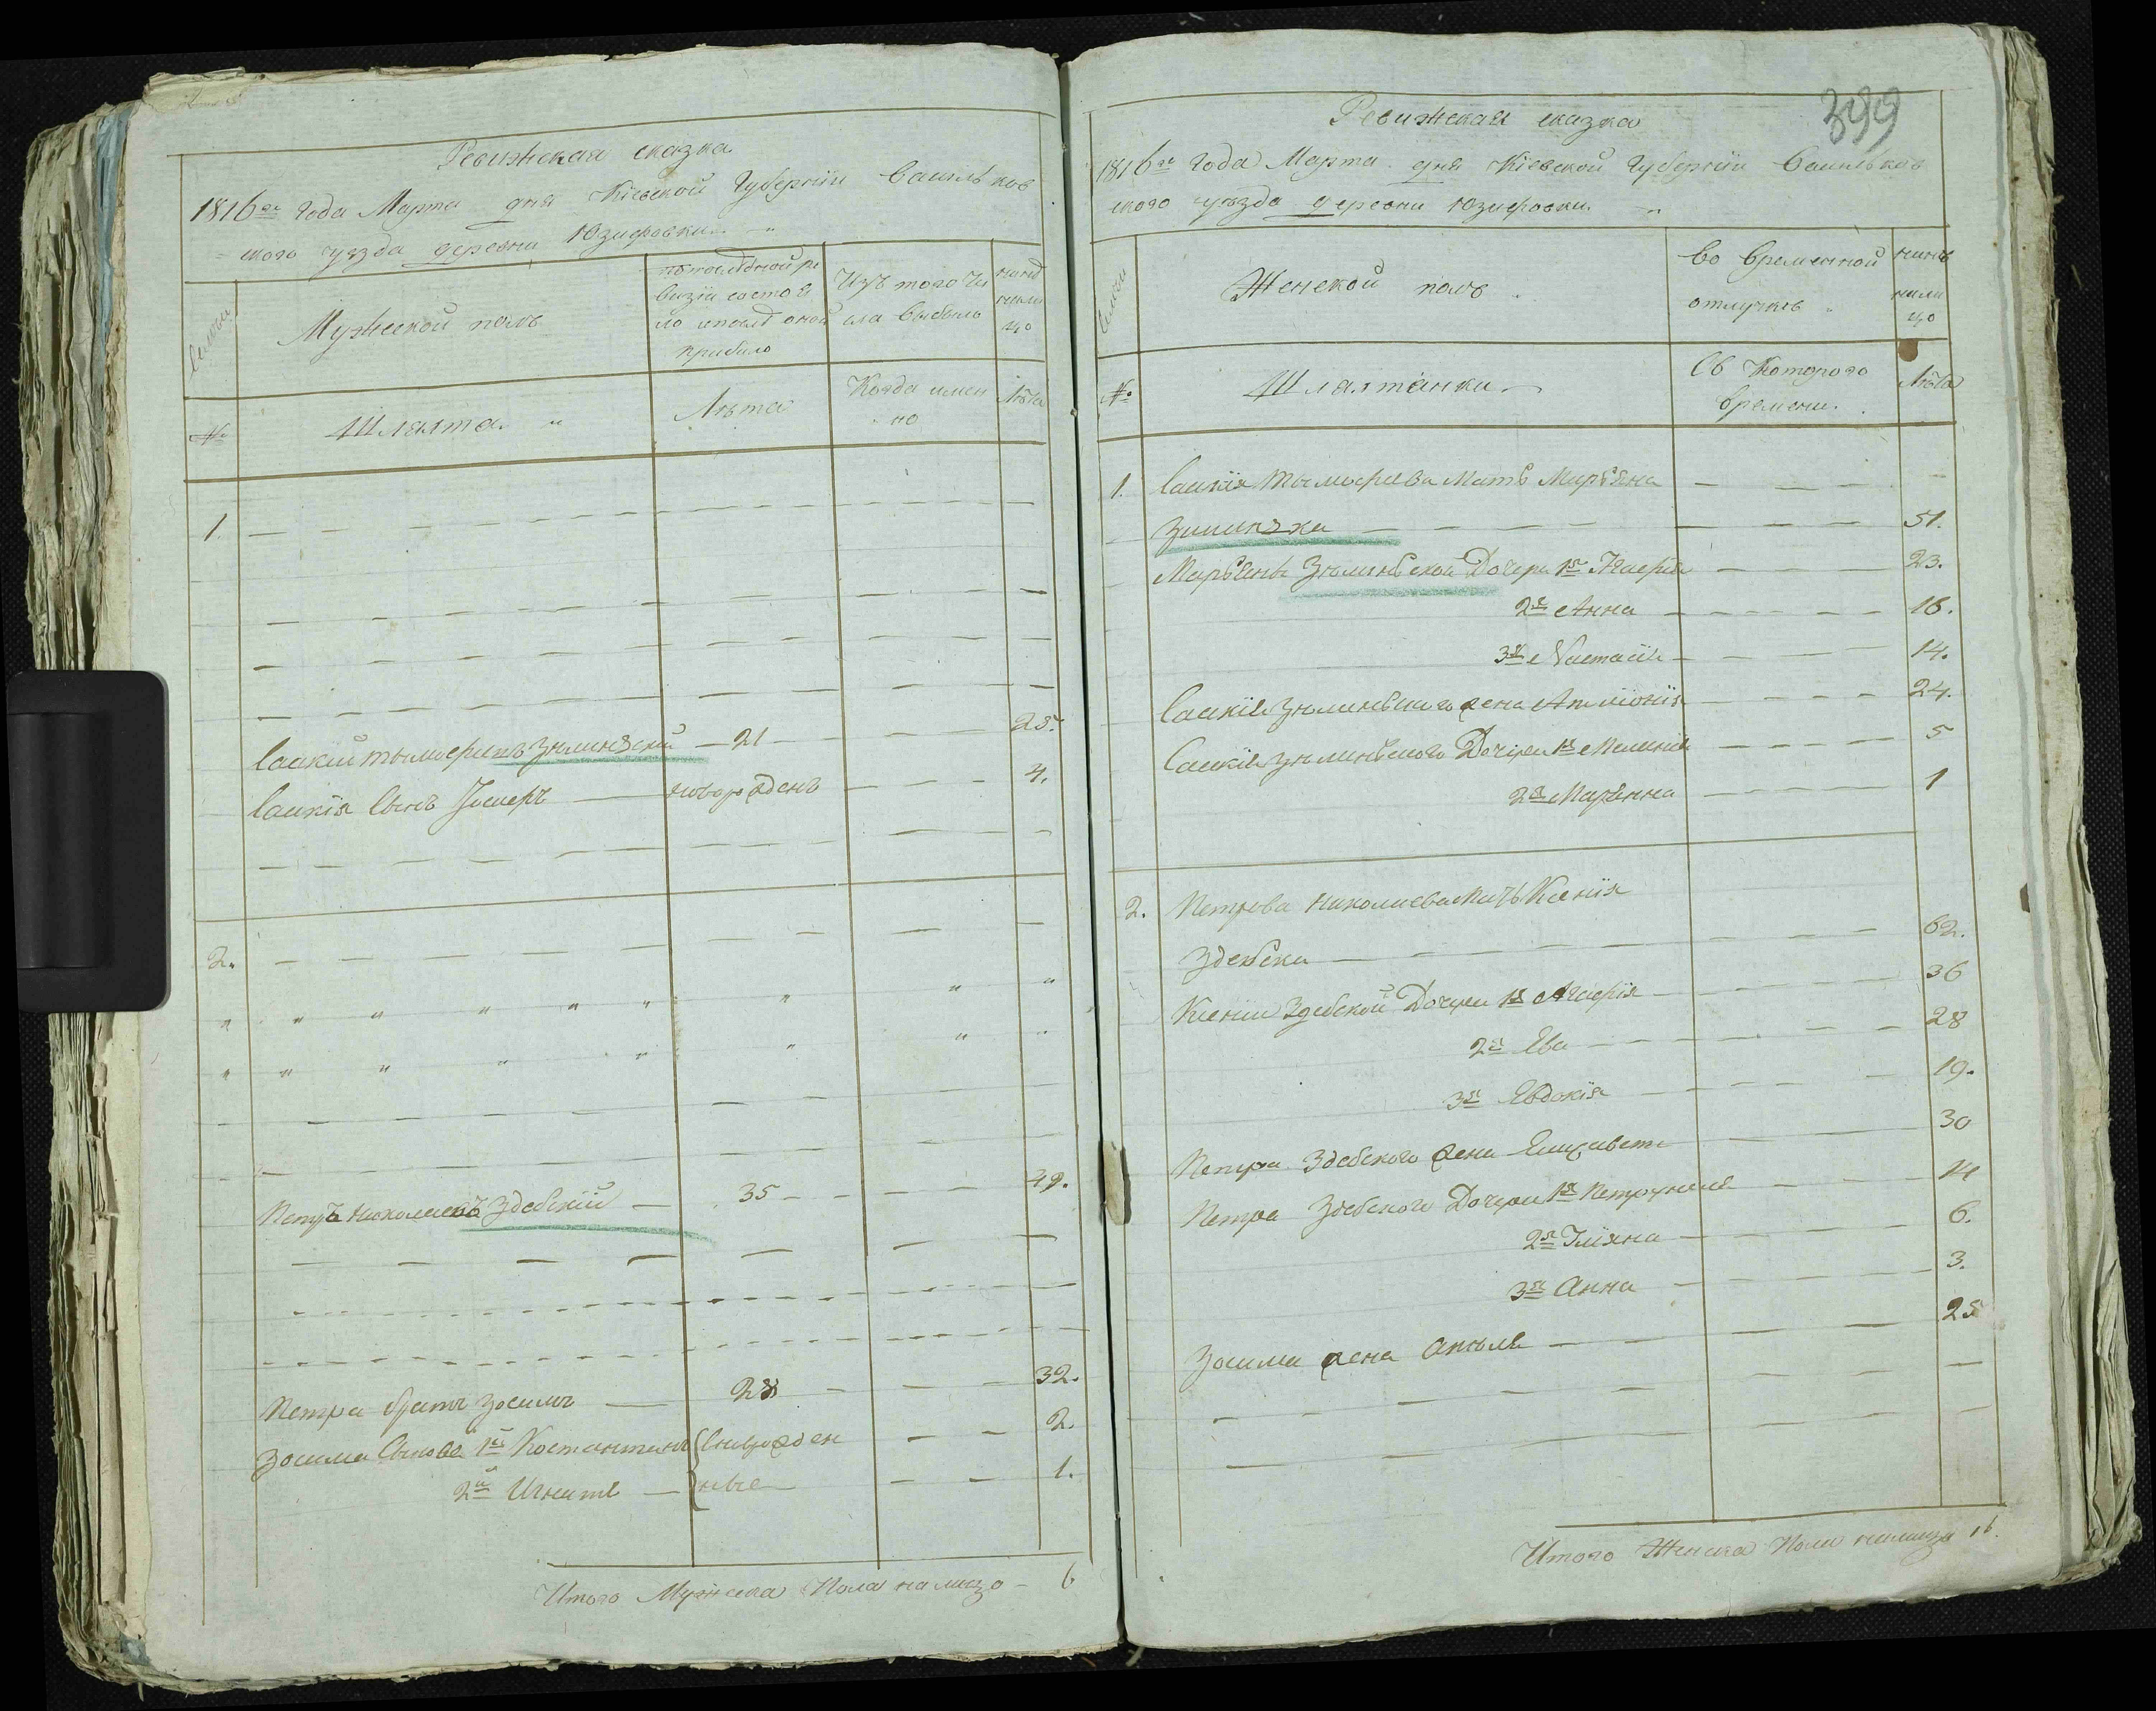 Ревижская сказка
1816го года Марта дня Кіевской Губерніи Васильков
ского уезда деревни Юзифовки
Семьи
Мужеской полъ
попоследной ре
визіи состоя
ло ипослѣ оной
прибило
Изъ того чи
сла выбыло
нинѣ
нали
цо
№
Шляхта
Лѣта
Когда имен
но
Лѣта
1.
Саскій тымофиевъ Зилинѣский 21 25.
Саскія Сынъ Іосифъ новорожденъ 4.
2.
Петръ Николаевъ Здебскій 35 39.
Петра братъ Зосимъ 28 32.
Зосима Сынове 1й Костантинъ Сновурожден 2.
2й Игнатъ ные 1.
Итого Мужеска Пола налицо 6
399
Ревижская сказка
1816го года Марта дня Кіевской Губерніи Васильков
ского уезда деревни Юзифовки
Семьи
Женской полъ
во временной
отлучкѣ
нинѣ
нали
цо
№
Шляхтянки
Съ Которого
времени.
Лѣта
1. Саскія Тымофиева Мать Марьяна
51.
Марьяны Зилинѣской Дочери 1я Агафія 23.
2я Анна 16.
3я Настасія 14.
Саскія Зилинѣского жена Аполонія 24.
Саскія Зилинѣского Дочери 1я Меланія 5
2я Марьянна 1
2. Петрова Николаева Мать Ксенія
Здебска 62.
Ксеніи Здебской Дочери 1я Агафія 36
2я Ева 28
3я Евдокія 19.
Петра Здебского жена Елизавета 30
Петра Здебского Дочери 1я Петрунеля 14
2я Уліяна 6.
3я Анна 3.
Зосима жена 25
Итого Женска Пола налицо 16.